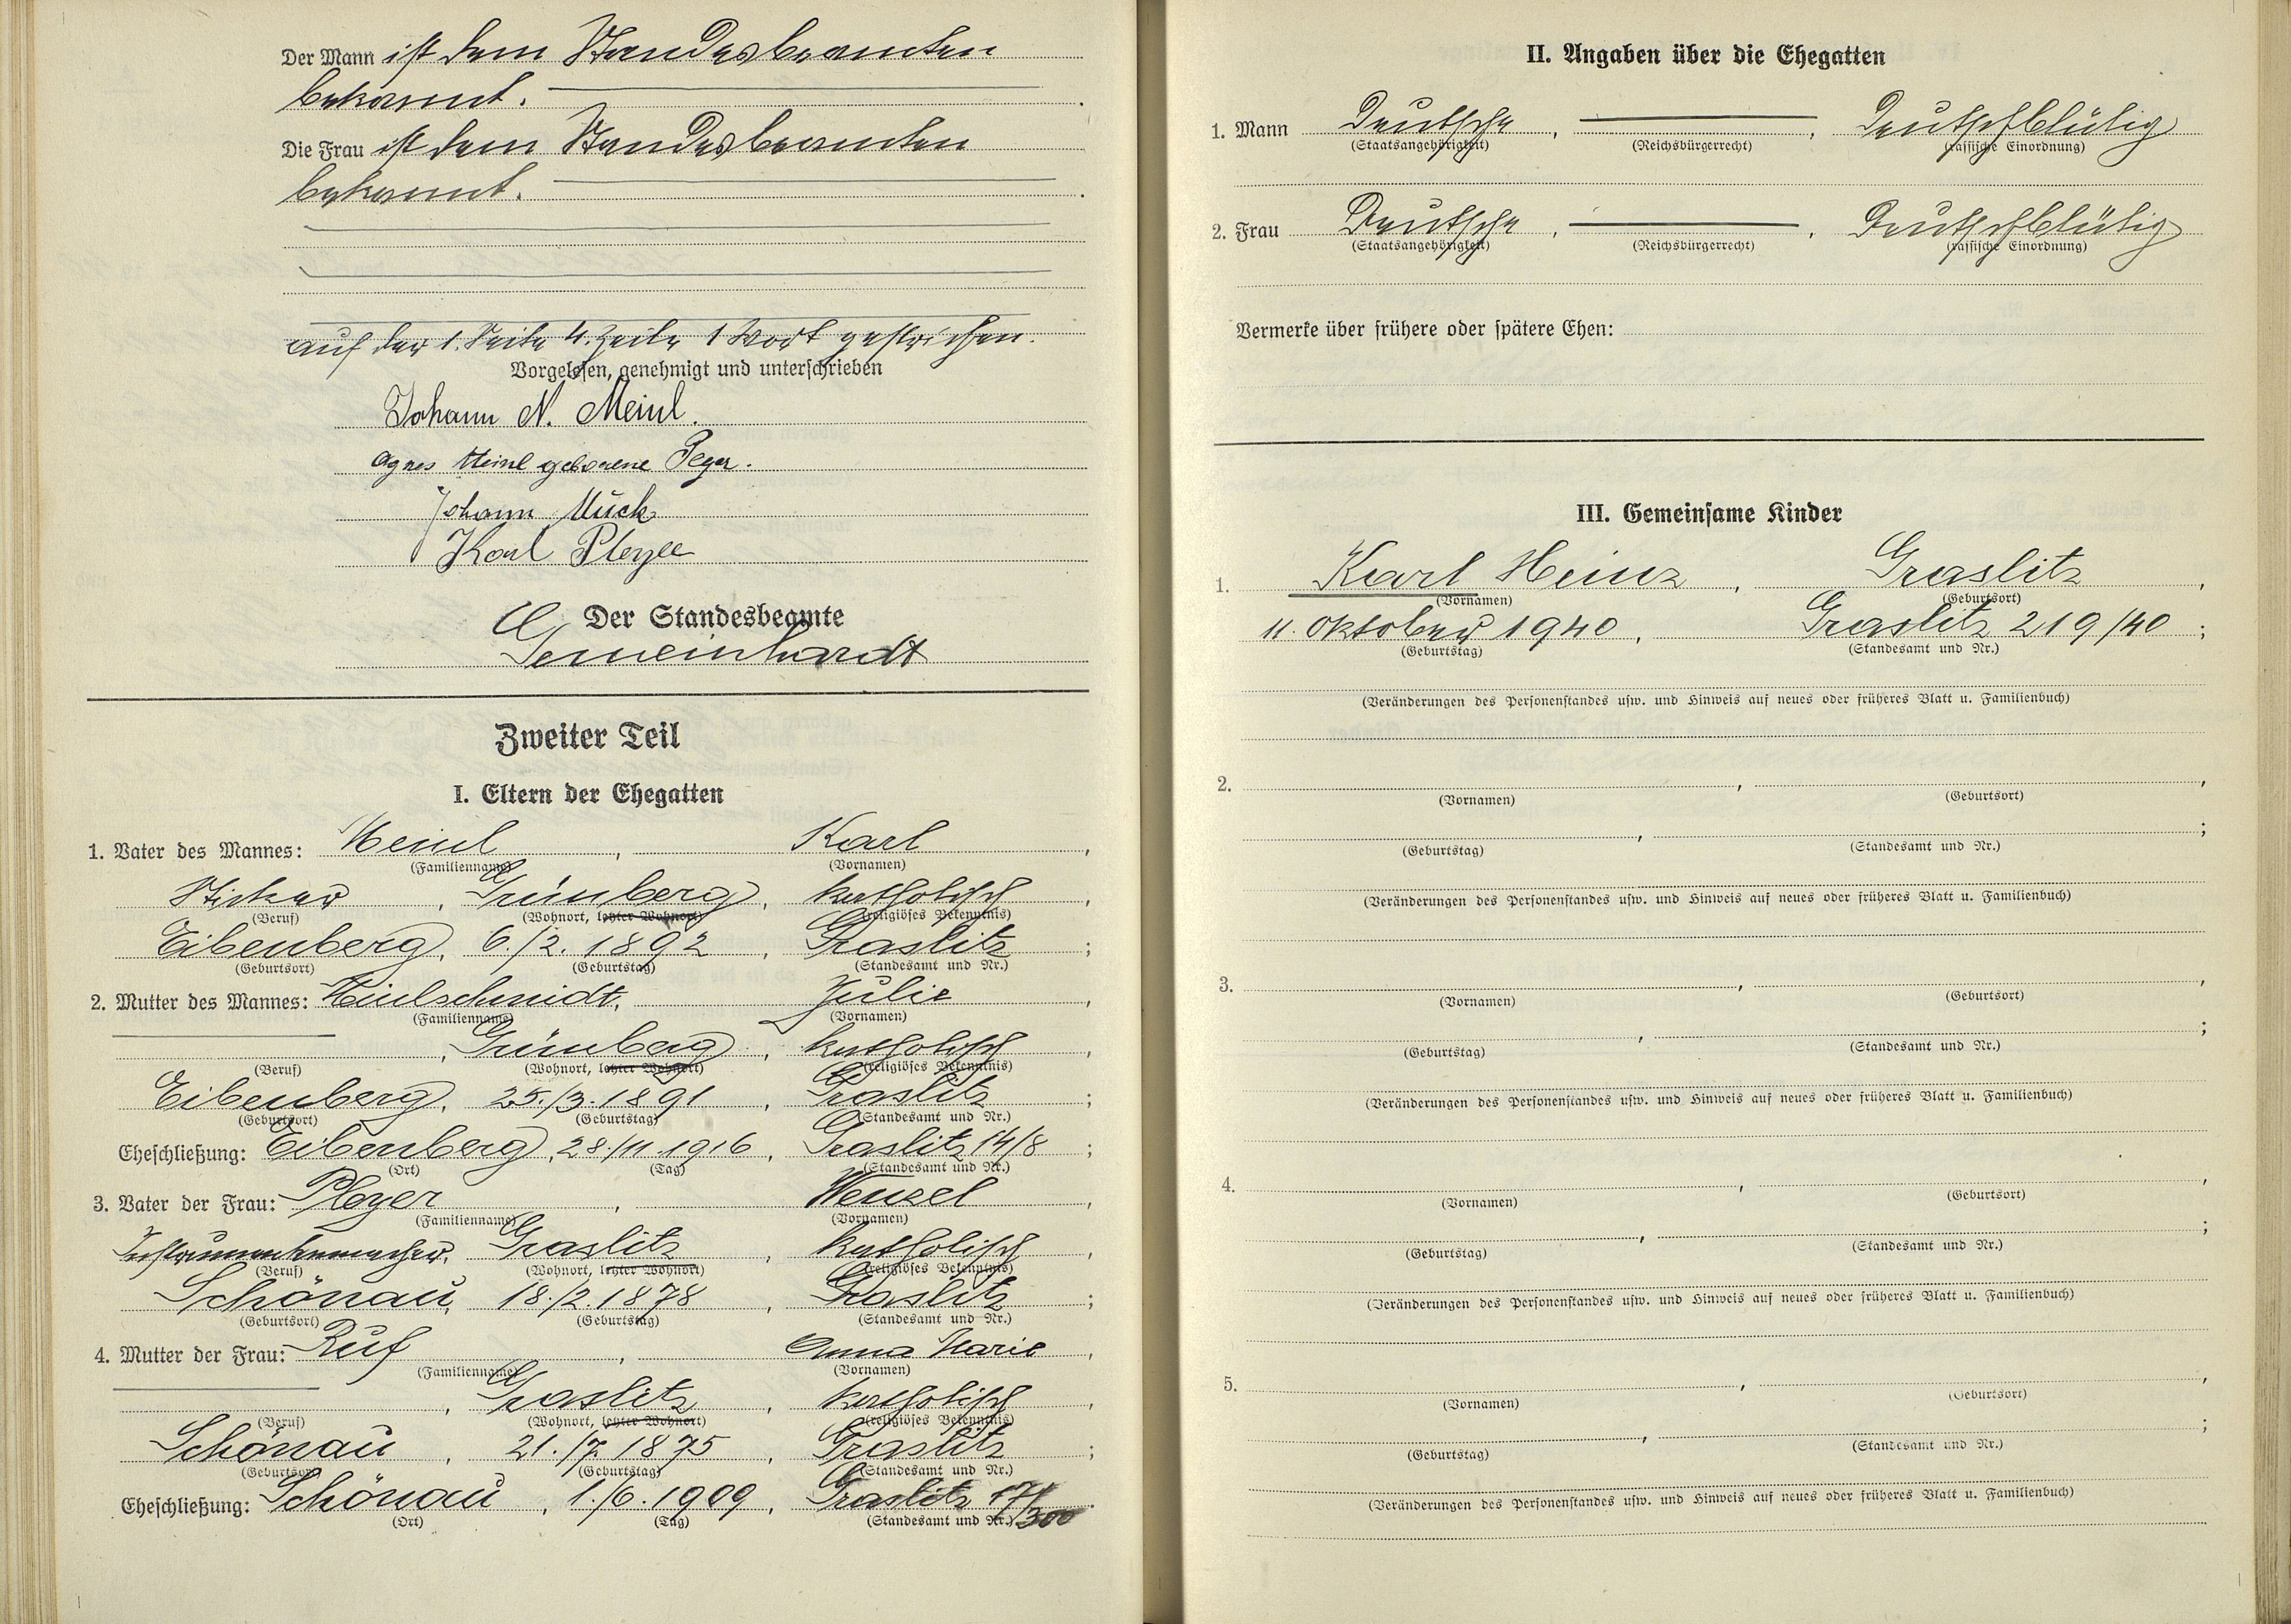 Der Mann ist dem Standesbeamten
bekannt.
Die Frau ist dem Standesbeamten
bekannt.
auf der 1. Seite 4. Zeile 1 Wort gestrichen.
Vorgelesen, genehmigt und unterschrieben
Johann N. Meinl.
Agnes Meinl geborene
Johann Mück
Karl
Der Standesbeamte
Gemeinhardt
Zweiter Teil
I. Eltern der Ehegatten
1. Vater des Mannes: Meinl, Karl,
(Familienname) (Vornamen)
Sticker, Grünberg, katholisch,
(Beruf) (Wohnort, letzter Wohnort) (religiöses Bekenntnis)
Eibenberg, 6./2. 1892, Graslitz;
(Geburtsort) (Geburtstag) (Standesamt und Nr.)
2. Mutter des Mannes: Meinlschmidt, Julie,
(Familienname) (Vornamen)
, Grünberg, katholisch,
(Beruf) (Wohnort, letzter Wohnort) (religiöses Bekenntnis)
Eibenberg, 25./3. 1891, Graslitz;
(Geburtsort) (Geburtstag) (Standesamt und Nr.)
Eheschließung: Eibenberg, 28./11. 1916, Graslitz 14/8;
(Ort) (Tag) (Standesamt und Nr.)
3. Vater der Frau: Ployer, Wenzel,
(Familienname) (Vornamen)
Instrumentenmacher, Graslitz, katholisch,
(Beruf) (Wohnort, letzter Wohnort) (religiöses Bekenntnis)
Schönau, 18./2. 1878, Graslitz;
(Geburtsort) (Geburtstag) (Standesamt und Nr.)
4. Mutter der Frau: Ruf, Anna Marie,
(Familienname) (Vornamen)
, Graslitz, katholisch,
(Beruf) (Wohnort, letzter Wohnort) (religiöses Bekenntnis)
Schönau, 21./7. 1875, Graslitz;
(Geburtsort) (Geburtstag) (Standesamt und Nr.)
Eheschließung: Schönau, 1./6. 1909, Graslitz 17/300.
(Ort) (Tag) (Standesamt und Nr.)
II. Angaben über die Ehegatten
1. Mann Deutsche, , Deutschblütig
(Staatsangehörigkeit) (Reichsbürgerrecht) (rassische Einordnung)
2. Frau Deutsche, , Deutschblütig
(Staatsangehörigkeit) (Reichsbürgerrecht) (rassische Einordnung)
Vermerke über frühere oder spätere Ehen:
III. Gemeinsame Kinder
1. Karl Heinz, Graslitz,
(Vornamen) (Geburtsort)
11. Oktober 1940, Graslitz 219/40;
(Geburtstag) (Standesamt und Nr.)
(Veränderungen des Personenstandes usw. und Hinweis auf neues oder früheres Blatt u. Familienbuch)
2. , ,
(Vornamen) (Geburtsort)
, ;
(Geburtstag) (Standesamt und Nr.)
(Veränderungen des Personenstandes usw. und Hinweis auf neues oder früheres Blatt u. Familienbuch)
3. , ,
(Vornamen) (Geburtsort)
, ;
(Geburtstag) (Standesamt und Nr.)
(Veränderungen des Personenstandes usw. und Hinweis auf neues oder früheres Blatt u. Familienbuch)
4. , ,
(Vornamen) (Geburtsort)
, ;
(Geburtstag) (Standesamt und Nr.)
(Veränderungen des Personenstandes usw. und Hinweis auf neues oder früheres Blatt u. Familienbuch)
5. , ,
(Vornamen) (Geburtsort)
, ;
(Geburtstag) (Standesamt und Nr.)
(Veränderungen des Personenstandes usw. und Hinweis auf neues oder früheres Blatt u. Familienbuch)